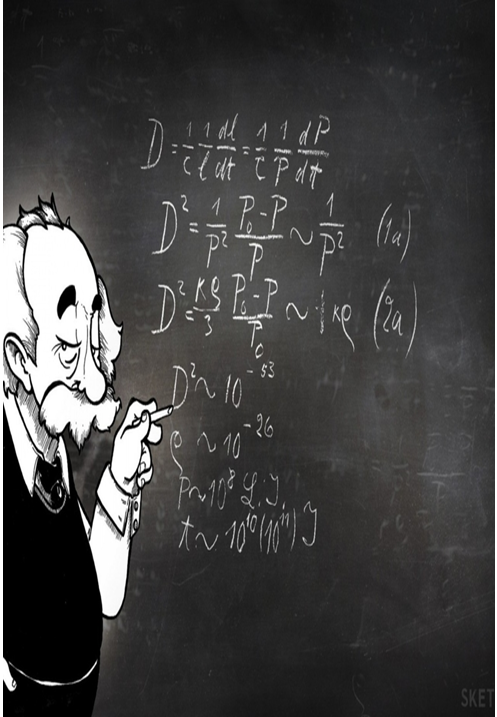 D = 1/c 1/l dl/dt = 1/c 1/P dP/dt
D² = 1/P² P₀-P/P ~ 1/P² (1a)
D² = κρ/3 P₀-P/P₀ ~ ⅓ κρ (2a)
D² ~ 10⁻⁵³
ρ ~ 10⁻²⁶
P ~ 10⁸ L. J.
t ~ 10¹⁰ (10¹¹) J
SKET